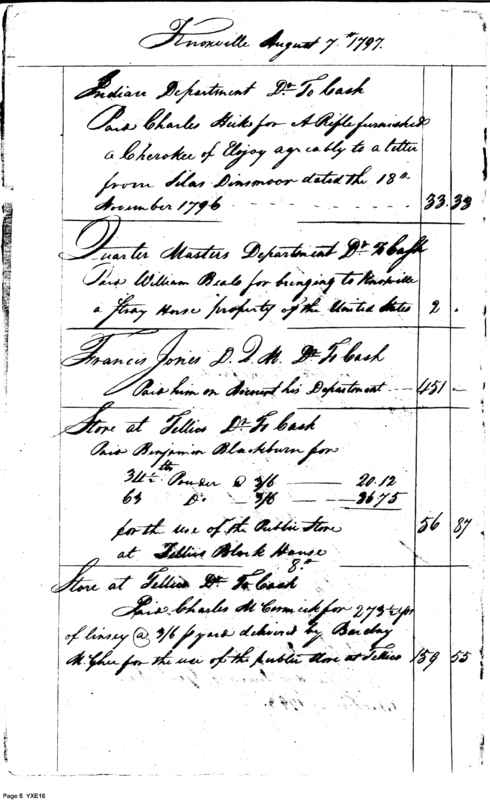 Knoxville August 7th 1797.
Indian Department Dr To Cash
Paid Charles Hicks for A Rifle furnished
a Cherokee of Elejoy agreably to a letter
from Silas Dinsmoor dated the 18th
November 1796 33 33
Quarter Masters Department Dr To Cash
Paid William Beals for bringing to Knoxville
a stray Horse property of the United States 2 .
Francis Jones D. Q. M. Dr To Cash
Paid him on Account his Department 451 —
Store at Tellico Dr To Cash
Paid Benjamin Blackburn for
34½ lb Powder @ 3/6 — 20.12
63 Do — 3/6 — 36 75
for the use of the Public Store 56 87
at Tellico Block House
8th
Store at Tellico Dr To Cash
Paid Charles McCormick for 273½ yds
of linsey @ 3/6 p yard delivered by Barclay
McGhee for the use of the public store at Tellico 159 55
Page 5 YXE16